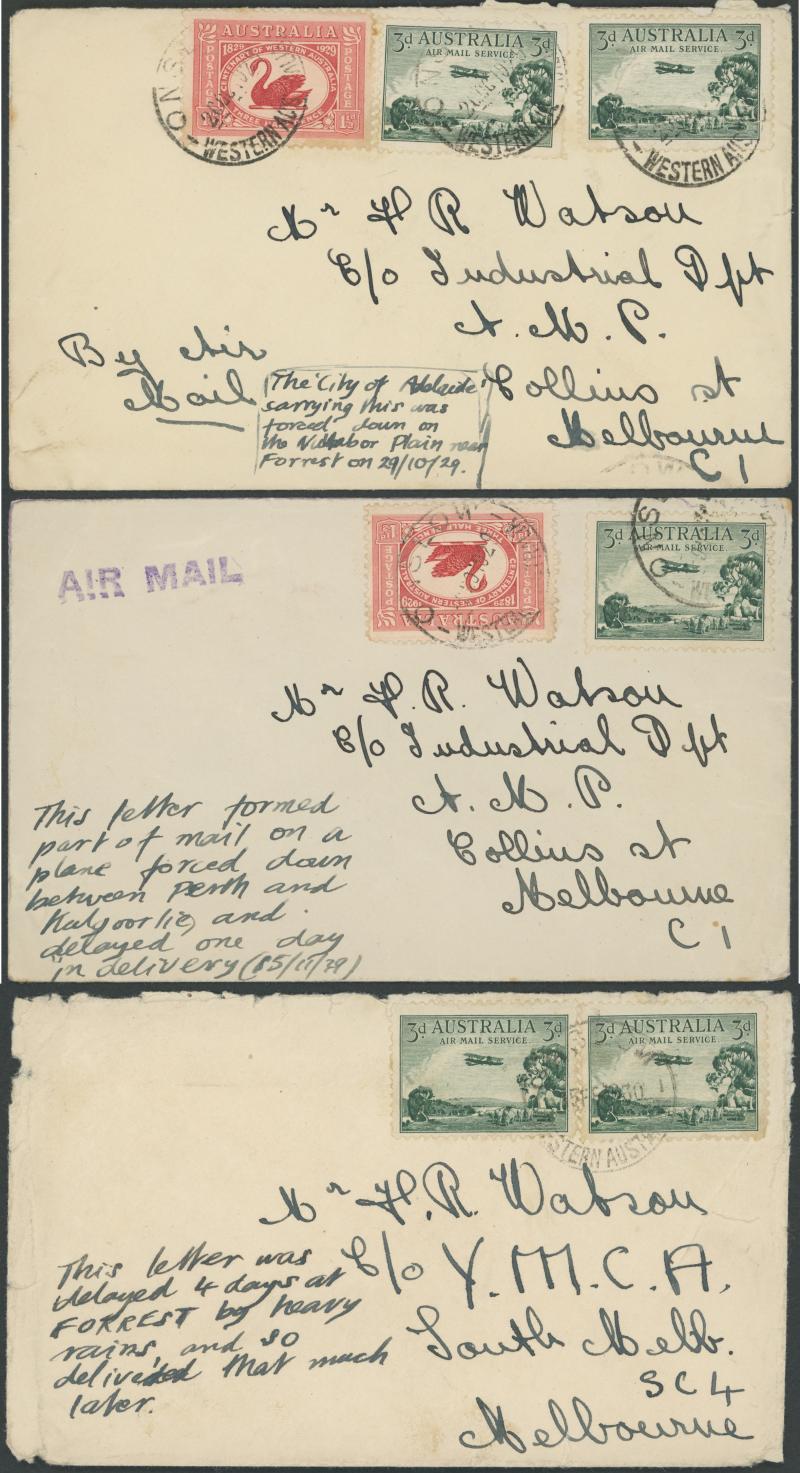 AUSTRALIA
1829 CENTENARY OF WESTERN AUSTRALIA 1929
POSTAGE POSTAGE
THREE HALFPENCE
1½d
3d AUSTRALIA 3d
AIR MAIL SERVICE
3d AUSTRALIA 3d
AIR MAIL SERVICE
WESTERN AUS
WESTERN AUS
WESTERN AUS
Mr H R Watson
C/o Industrial Dpt
A. M. P.
Collins st
Melbourne
C 1
By Air
Mail
The 'City of Adelaide'
carrying this was
forced down on
the Nullabor Plain near
Forrest on 29/10/29.
AIR MAIL
POSTAGE
THREE HALFPENCE
CENTENARY OF WESTERN AUSTRALIA
1829 1929
3d AUSTRALIA 3d
AIR MAIL SERVICE
ONSLOW
WESTERN
Mr H. R. Watson
C/o Industrial Dpt
A. M. P.
Collins st
Melbourne
C 1
This letter formed
part of mail on a
plane forced down
between Perth and
Kalgoorlie, and
delayed one day
in delivery
3d AUSTRALIA 3d
AIR MAIL SERVICE
3d AUSTRALIA 3d
AIR MAIL SERVICE
Mr H. R. Watson
C/o Y. M. C. A.
South Melb.
SC4
Melbourne
This letter was
delayed 4 days at
FORREST by heavy
rains, and so
delivered that much
later.